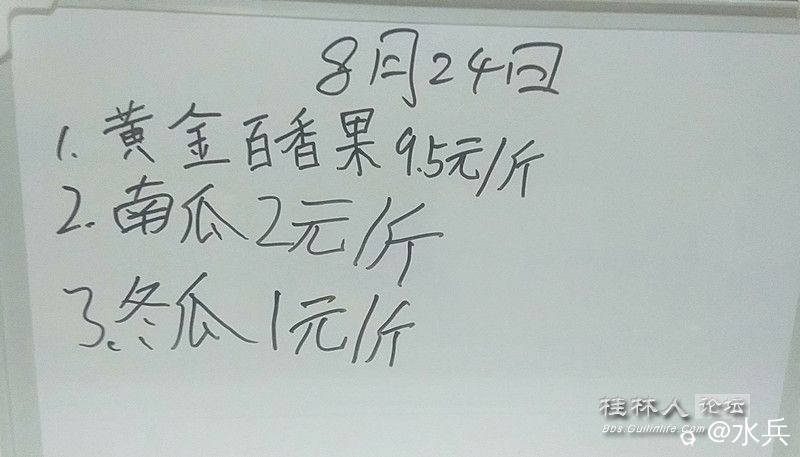 8月24日
1.黄金百香果9.5元/斤
2.南瓜2元/斤
3.冬瓜1元/斤
桂林人论坛
Bbs.Guilinlife.Com
@水兵